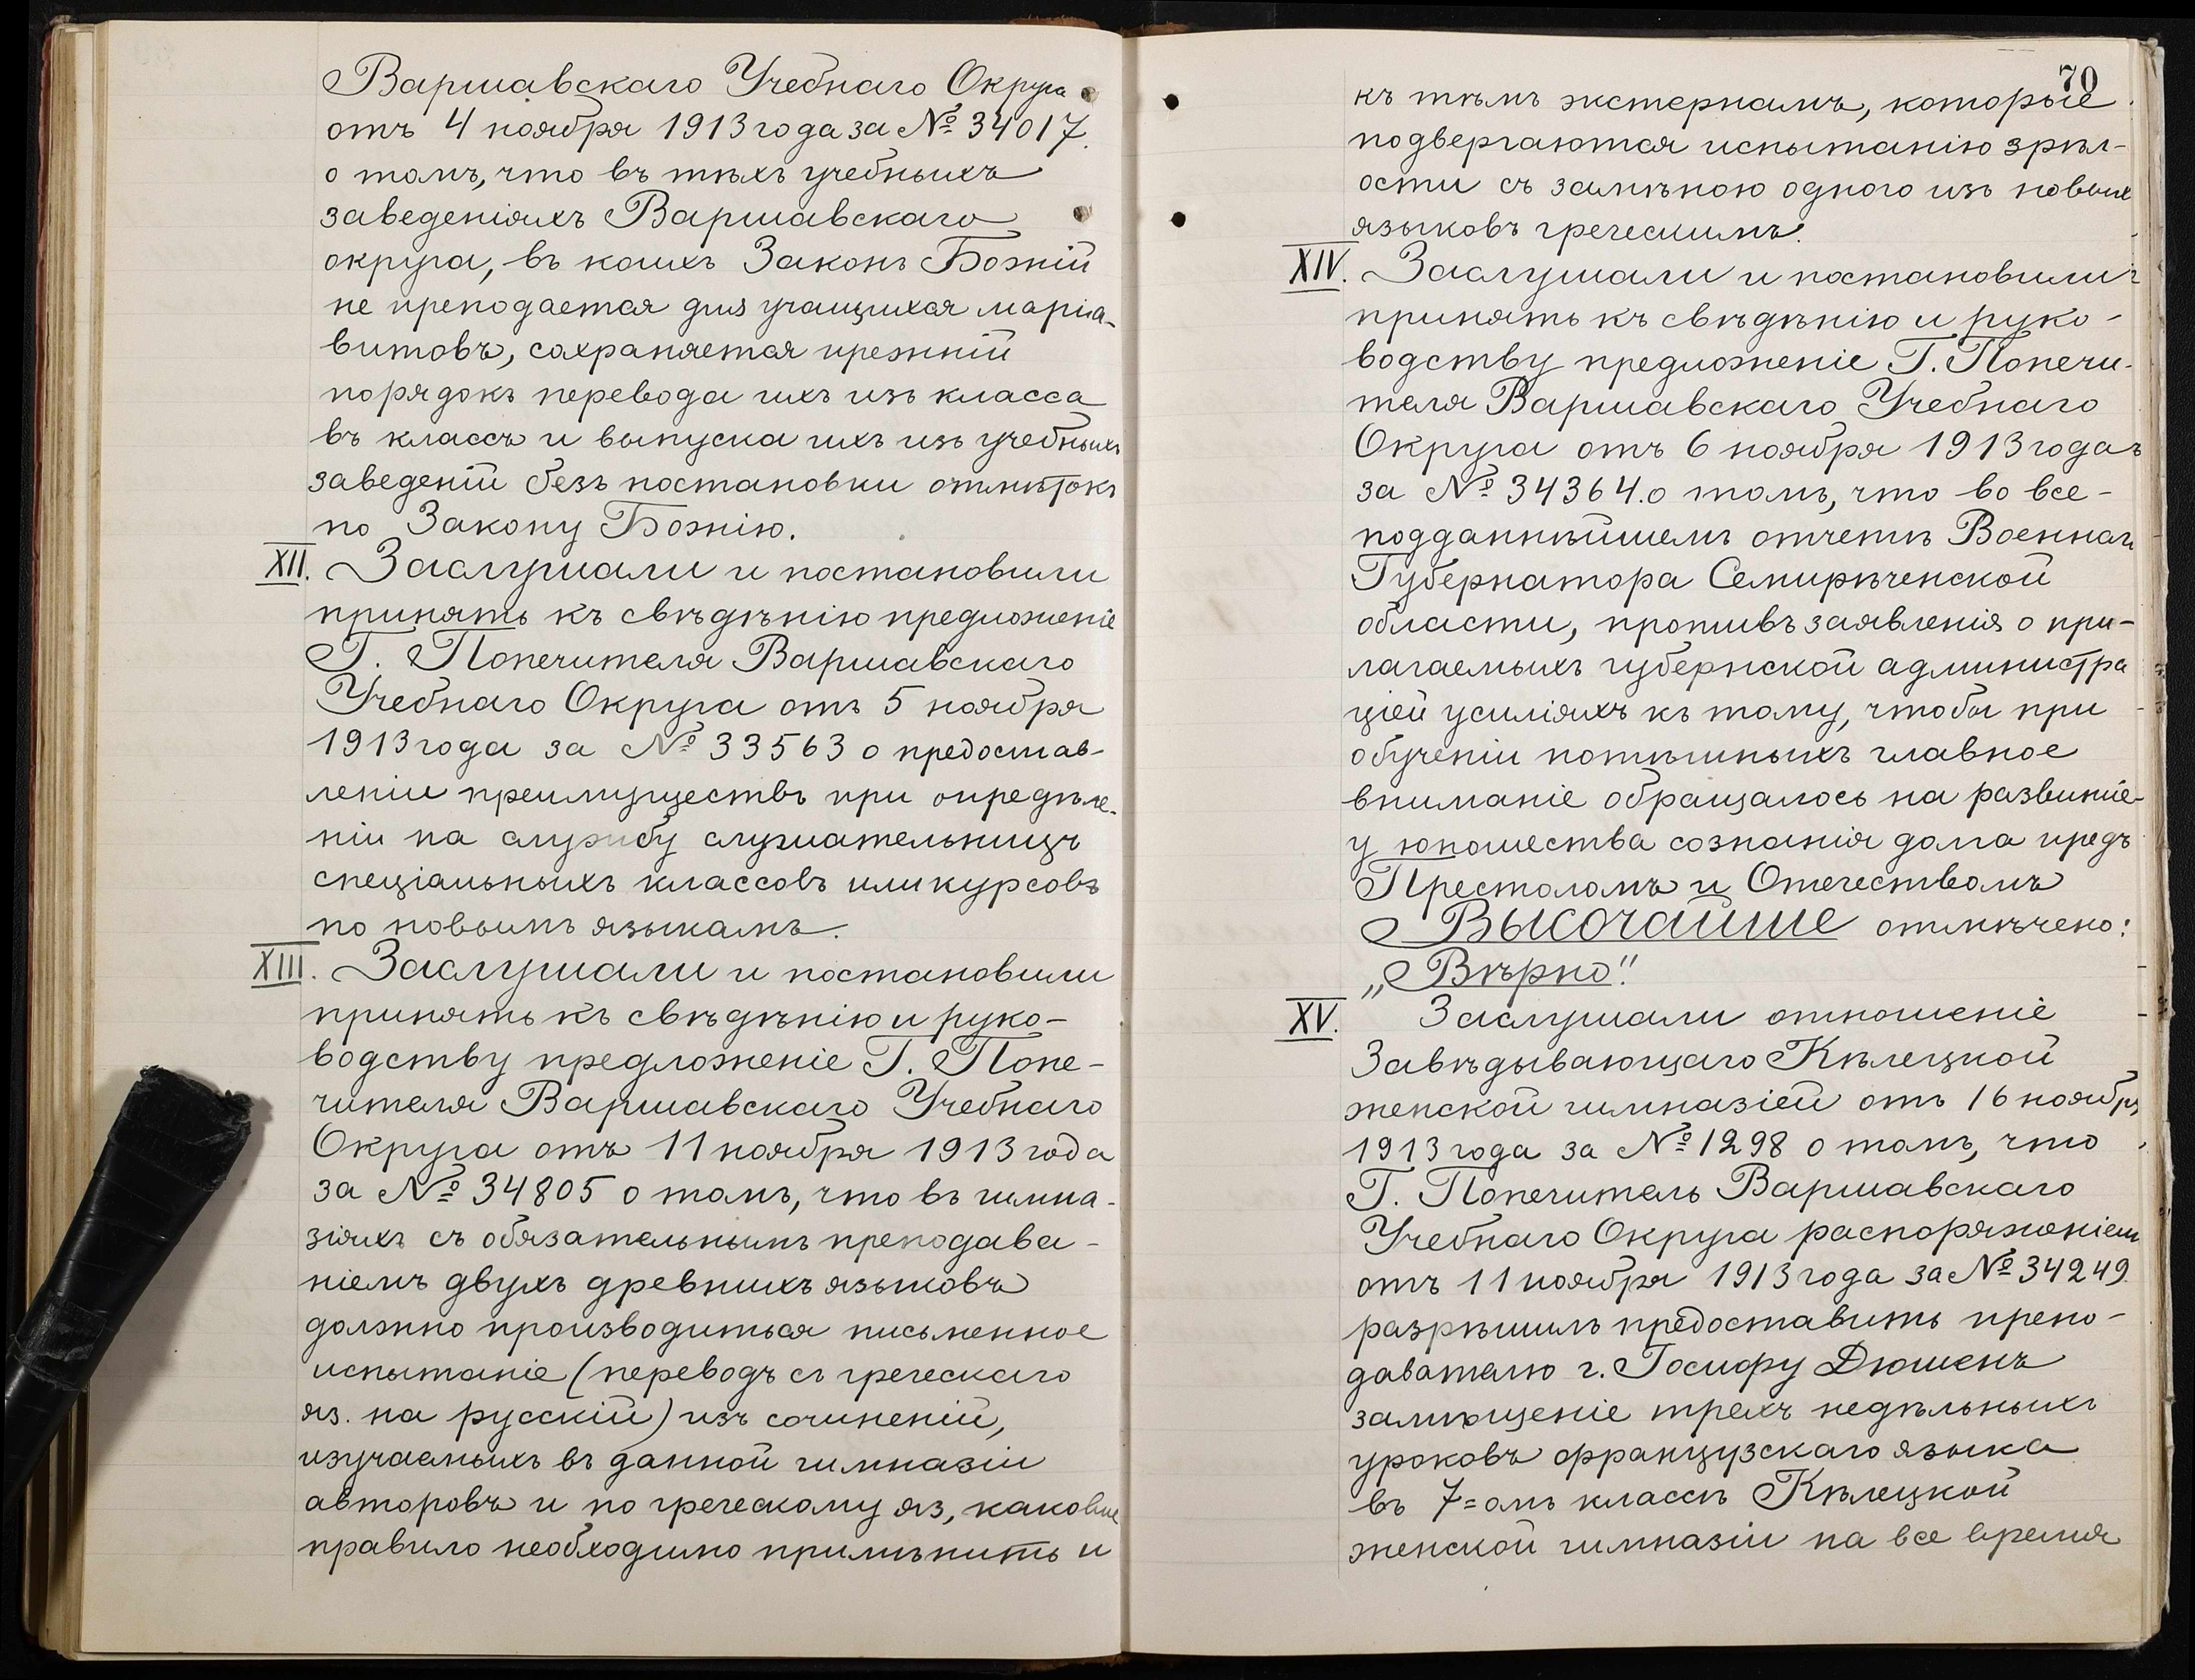 Варшавскаго Учебнаго Округа
отъ 4 ноября 1913 года за № 34017.
о томъ, что въ тѣхъ учебныхъ
заведеніяхъ Варшавскаго
округа, въ коихъ Законъ Божій
не преподается для учащихся маріа-
витовъ, сохраняется прежній
порядокъ перевода ихъ изъ класса
въ классъ и выпуска ихъ изъ учебныхъ
заведеній безъ постановки отмѣтокъ
по Закону Божію.
XII. Заслушали и постановили
принять къ свѣдѣнію предложеніе
Г. Попечителя Варшавскаго
Учебнаго Округа отъ 5 ноября
1913 года за № 33563 о предостав-
леніи преимуществъ при опредѣле-
ніи на службу слушательницъ
спеціальныхъ классовъ или курсовъ
по новымъ языкамъ.
XIII. Заслушали и постановили
принять къ свѣдѣнію и руко-
водству предложеніе Г. Попе-
чителя Варшавскаго Учебнаго
Округа отъ 11 ноября 1913 года
за № 34805 о томъ, что въ гимна-
зіяхъ съ обязательнымъ преподава-
ніемъ двухъ древнихъ языковъ
должно производиться письменное
испытаніе (переводъ съ греческаго
яз. на русскій) изъ сочиненій,
изучаемыхъ въ данной гимназіи
авторовъ и по греческому яз, каковые
правило необходимо примѣнить и
70
къ тѣмъ экстернамъ, которые
подвергаются испытанію зрѣл-
ости съ замѣною одного изъ новых
языковъ греческимъ.
XIV. Заслушали и постановили
принять къ свѣдѣнію и руко-
водству предложеніе Г. Попечи-
теля Варшавскаго Учебнаго
Округа отъ 6 ноября 1913 года
за № 34364. о томъ, что во все-
подданнѣйшемъ отчетѣ Военнаг
Губернатора Семирѣченской
области, противъ заявленія о при-
лагаемыхъ губернской администра
ціей усиліяхъ къ тому, чтобы при
обученіи потѣшныхъ главное
вниманіе обращалось на развитіе
у юношества сознанія долга предъ
Престоломъ и Отечествомъ
Высочайше отмѣчено:
„Вѣрно“.
XV. Заслушали отношеніе
Завѣдывающаго Кѣлецкой
женской гимназіей отъ 16 ноября
1913 года за № 1298 о томъ, что
Г. Попечитель Варшавскаго
Учебнаго Округа распоряженіем
отъ 11 ноября 1913 года за № 34249
разрѣшилъ предоставить препо-
давателю г. Іосифу Дюшенъ
замѣщеніе трехъ недѣльныхъ
уроковъ французскаго языка
въ 7=омъ классѣ Кѣлецкой
женской гимназіи на все время